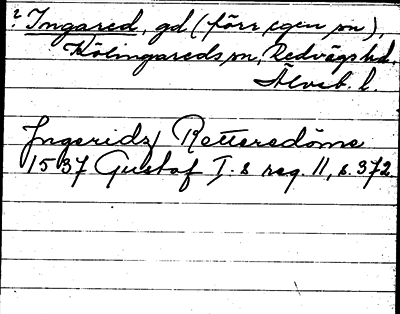 ? Ingared, gd (förr egen sn),
Kölingareds sn, Redvägs hd.
Älvsb. l.
Ingeridz Rettersdöme
1537 Gustaf I.s reg. 11, s. 372.